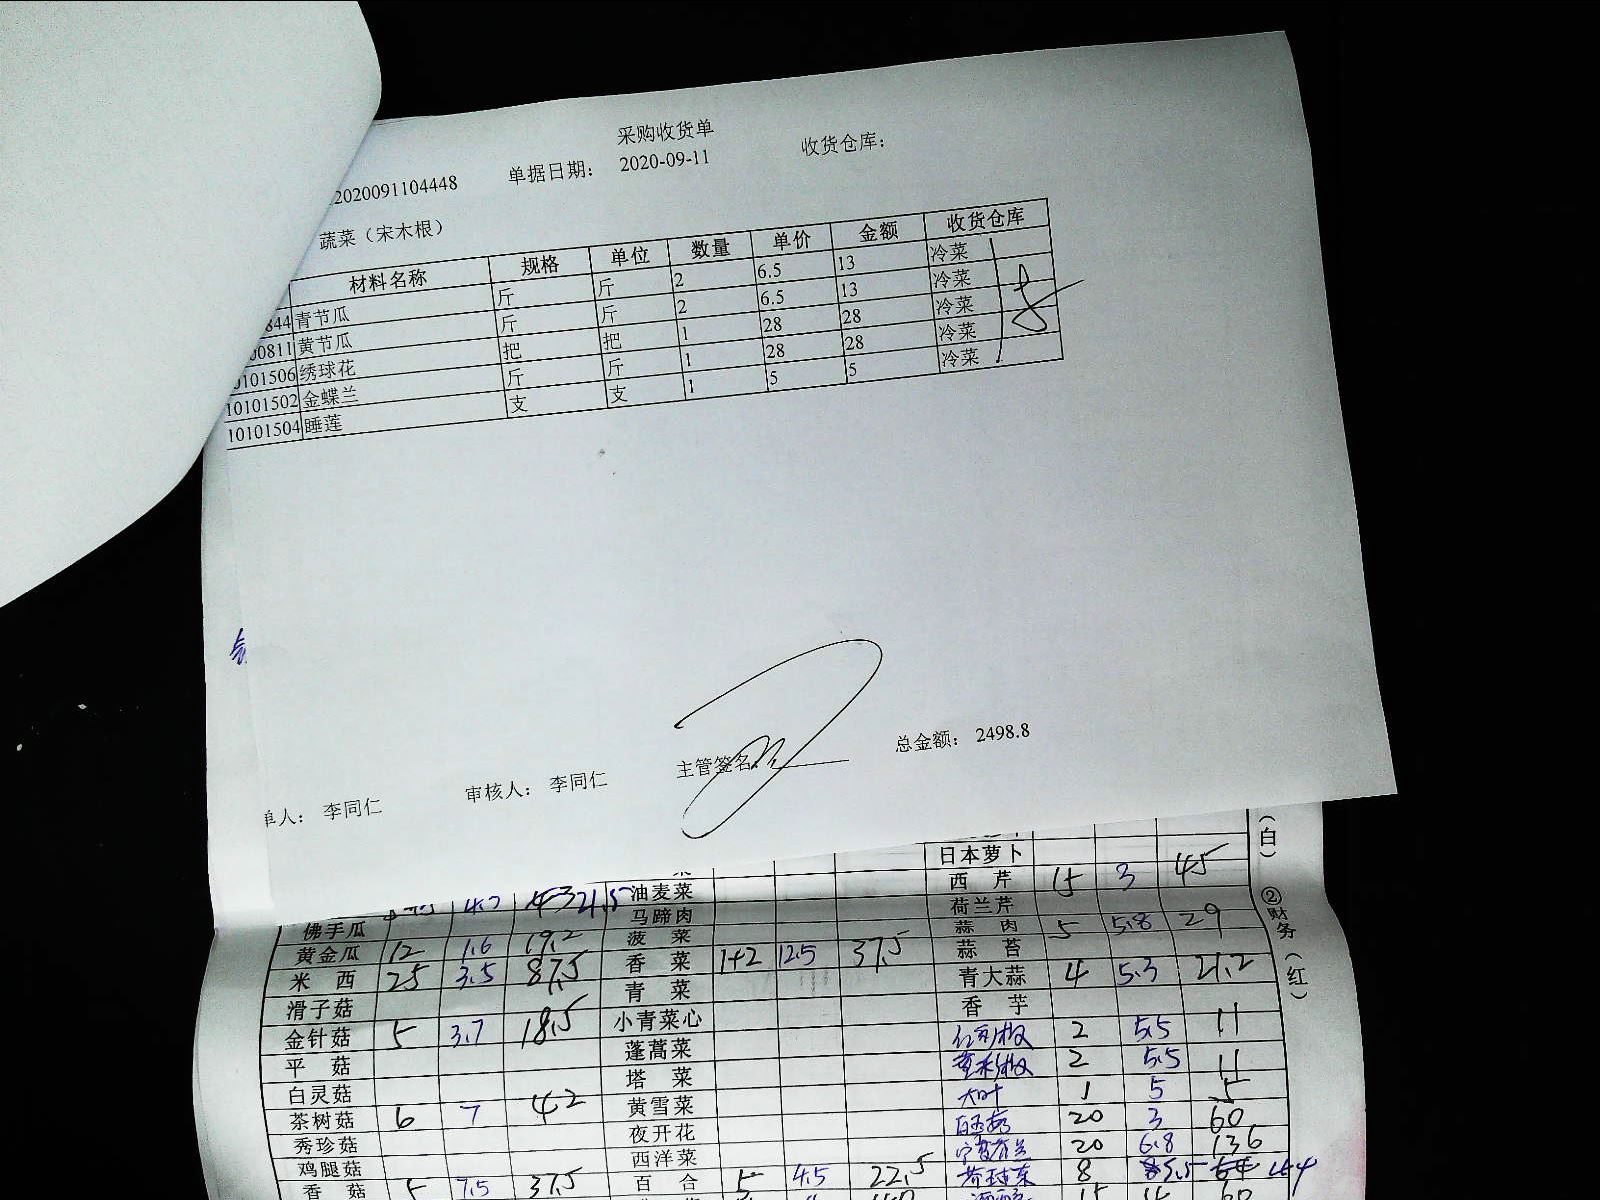 采购收货单
2020091104448 单据日期： 2020-09-11 收货仓库：
蔬菜（宋木根）
材料名称 规格 单位 数量 单价 金额 收货仓库
844 青节瓜 斤 斤 2 6.5 13 冷菜
00811 黄节瓜 斤 斤 2 6.5 13 冷菜
0101506 绣球花 把 把 1 28 28 冷菜
10101502 金蝶兰 斤 斤 1 28 28 冷菜
10101504 睡莲 支 支 1 5 5 冷菜
单人： 李同仁 审核人： 李同仁 主管签名： 总金额： 2498.8
（白） ②财务 （红）
日本萝卜
油麦菜 西芹 15 3 45
佛手瓜 马蹄肉 荷兰芹
黄金瓜 12 1.6 19.2 菠菜 蒜肉 5 5.8 29
米西 25 3.5 87.5 香菜 1+2 12.5 37.5 蒜苔
滑子菇 青菜 青大蒜 4 5.3 21.2
金针菇 5 3.7 18.5 小青菜心 香芋
平菇 蓬蒿菜 2 5.5 11
白灵菇 塔菜 2 5.5 11
茶树菇 6 7 42 黄雪菜 大叶 1 5 5
秀珍菇 夜开花 20 3 60
鸡腿菇 西洋菜 20 6.8 136
香菇 5 7.5 37.5 百合 5 4.5 22.5 8 5.5 44